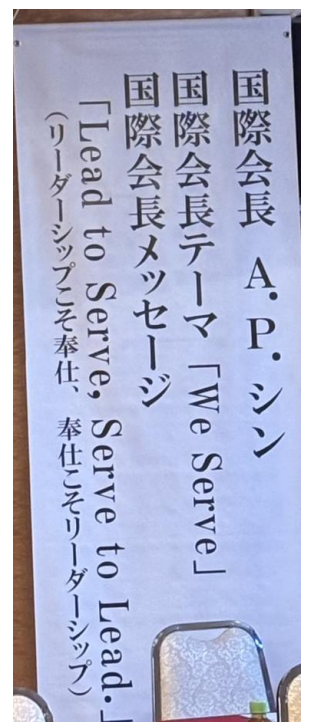 国際会長 A.P.シン
国際会長テーマ「We Serve」
国際会長メッセージ
「Lead to Serve, Serve to Lead.」
（リーダーシップこそ奉仕、奉仕こそリーダーシップ）